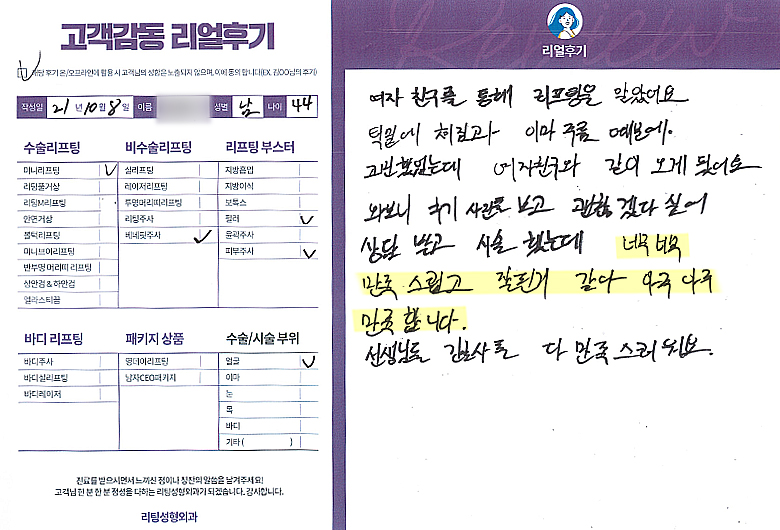 고객감동 리얼후기
해당 후기 온/오프라인에 활용 시 고객님의 성함은 노출되지 않으며, 이에 동의 합니다(EX. 김OO님의 후기)
작성일 21년 10월 8일 이름 성별 남 나이 44
수술리프팅 비수술리프팅 리프팅 부스터
미니리프팅 실리프팅 지방흡입
리팅풀거상 레이저리프팅 지방이식
리팅M리프팅 투명머리띠리프팅 보톡스
안면거상 리팅주사 필러
볼턱리프팅 베네핏주사 윤곽주사
미니브이리프팅 피부주사
반투명 머리띠 리프팅
상안검 & 하안검
엘라스티꿈
바디 리프팅 패키지 상품 수술/시술 부위
바디주사 원데이리프팅 얼굴
바디실리프팅 남자CEO패키지 이마
바디레이저 눈
목
바디
기타 ( )
진료를 받으시면서 느끼신 점이나 칭찬의 말씀을 남겨주세요!
고객님 한 분 한 분 정성을 다하는 리팅성형외과가 되겠습니다. 감사합니다.
리팅성형외과
Review
리얼후기
여자 친구를 통해 리프팅을 알았어요
턱밑에 처짐과 이마 주름 때문에.
고민했었는데 여자친구와 같이 오게 됬어요
와보니 후기 사진을 보고 괜찮겠다 싶어
상담 받고 시술 했는데 너무 너무
만족 스럽고 잘된거 같다 아주 아주
만족 합니다.
선생님도 간호사도 다 만족 스러워요.